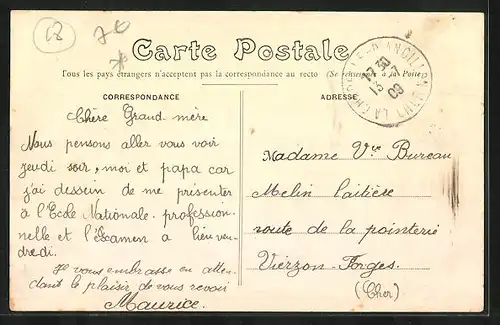 18
Carte Postale
Tous les pays étrangers n'acceptent pas la correspondance au recto (Se renseigner à la Poste)
CORRESPONDANCE
ADRESSE
LA CHAPELLE-D'ANGILLON
17 30
09
Chère Grand-mère
Nous pensons aller vous voir
jeudi soir, moi et papa car
j'ai dessein de me présenter
à l'Ecole Nationale-profession-
nelle et l'examen a lieu ven-
dredi.
Je vous embrasse en atten-
dant le plaisir de vous revoir
Maurice.
Madame Vve Bureau
Melin laitière
route de la pointerie
Vierzon-Forges.
(Cher)